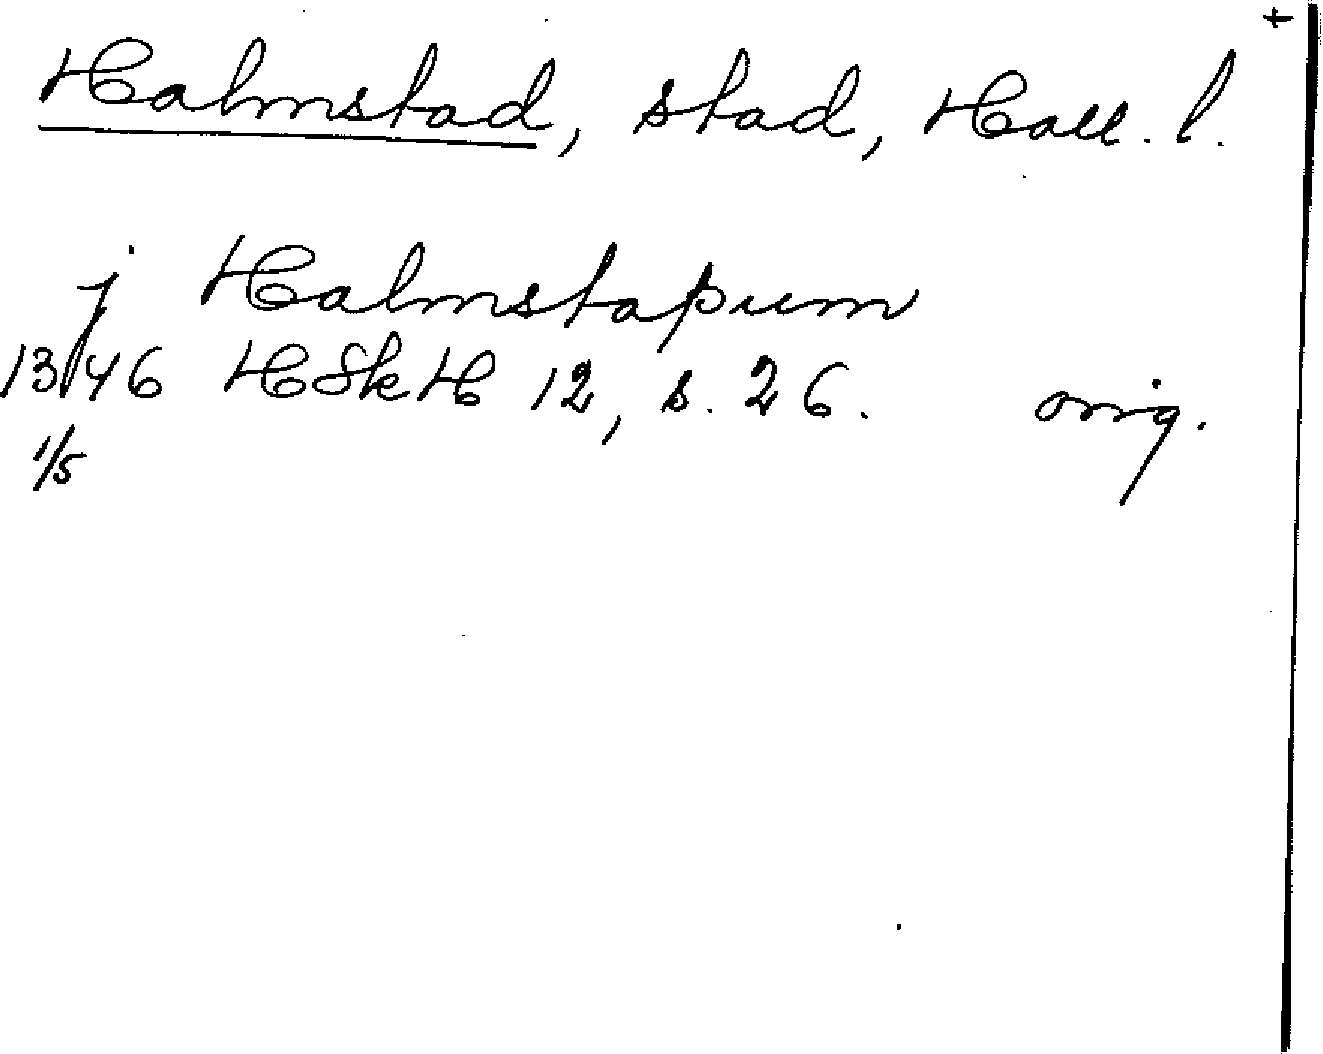 +
Halmstad, stad, Hall. l.
j Halmstaþum
1346 HSkH 12, s. 26. orig.
1/5